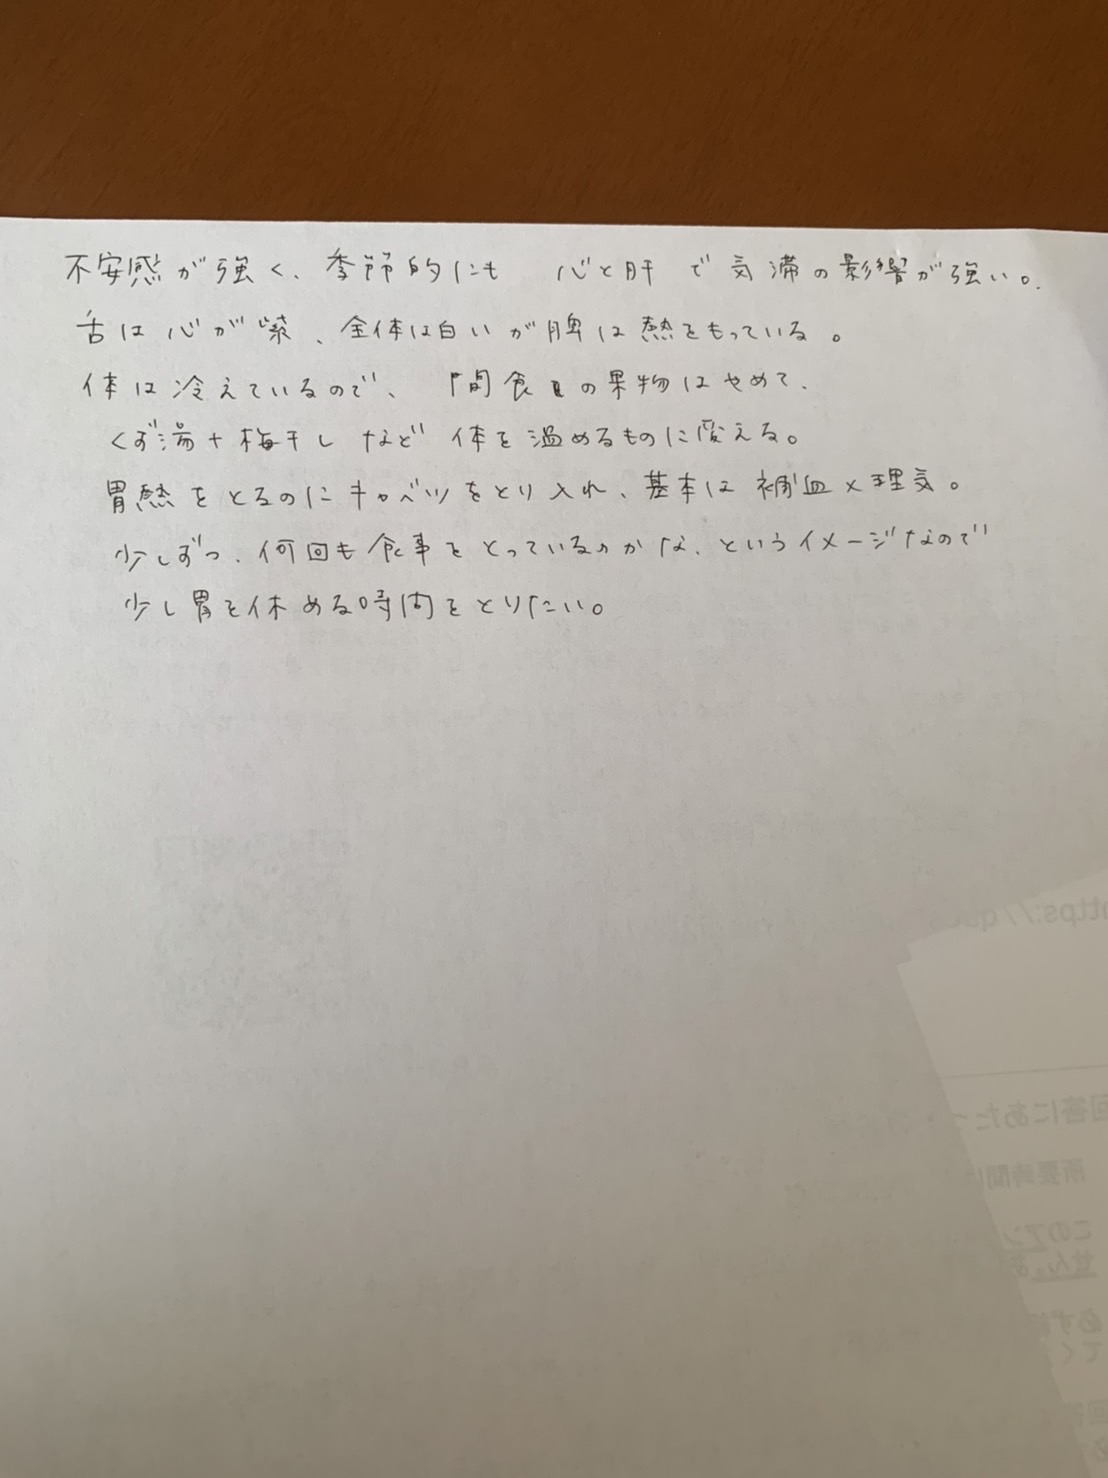 不安感が強く、季節的にも 心と肝で気滞の影響が強い。
舌は心が紫、全体は白いが脾は熱をもっている。
体は冷えているので、間食の果物はやめて、
くず湯+梅干しなど体を温めるものに変える。
胃熱をとるのにキャベツをとり入れ、基本は補血×理気。
少しずつ、何回も食事をとっているのかな、というイメージなので
少し胃を休める時間をとりたい。
https://qu
回答にあたっ
所要時間
このアン
せん。あ
必ず
てく